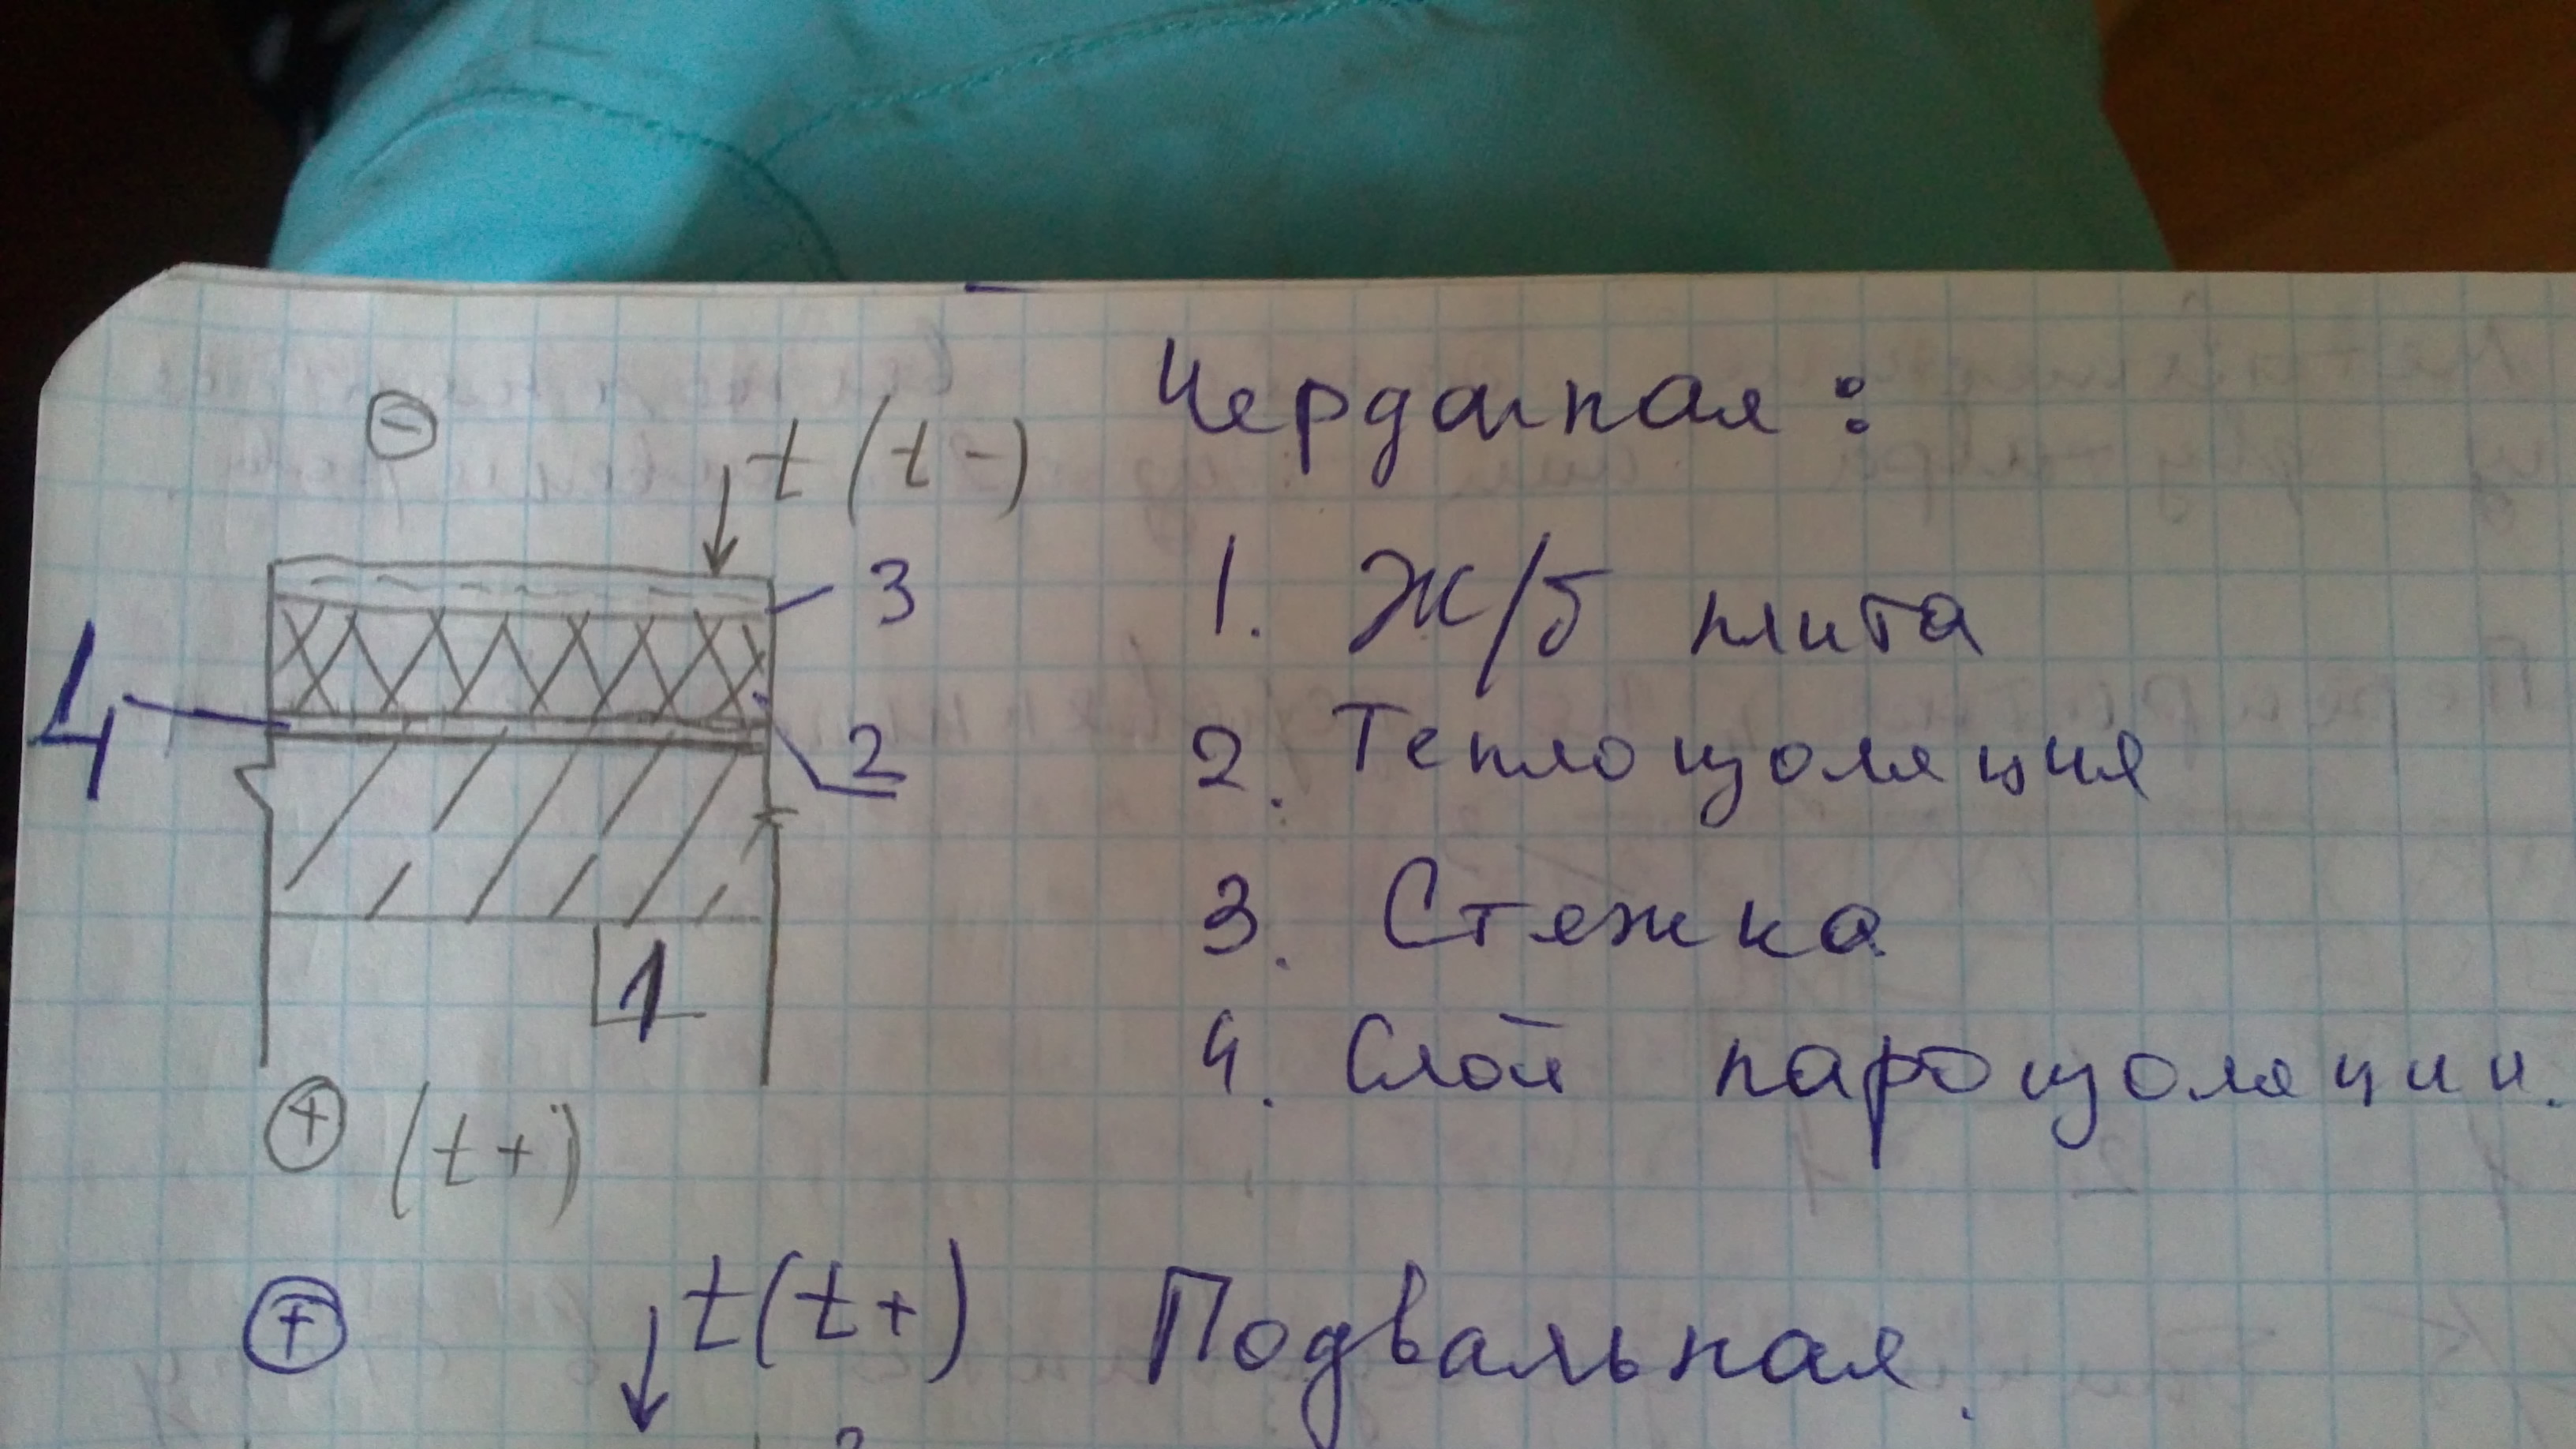 ⊖
t (t-)
Чердачная:
3
1. Ж/б плита
4
2
2. Теплоизоляция
3. Стяжка
1
4. Слой пароизоляции.
⊕ (t+)
⊕ t(t+) Подвальная.